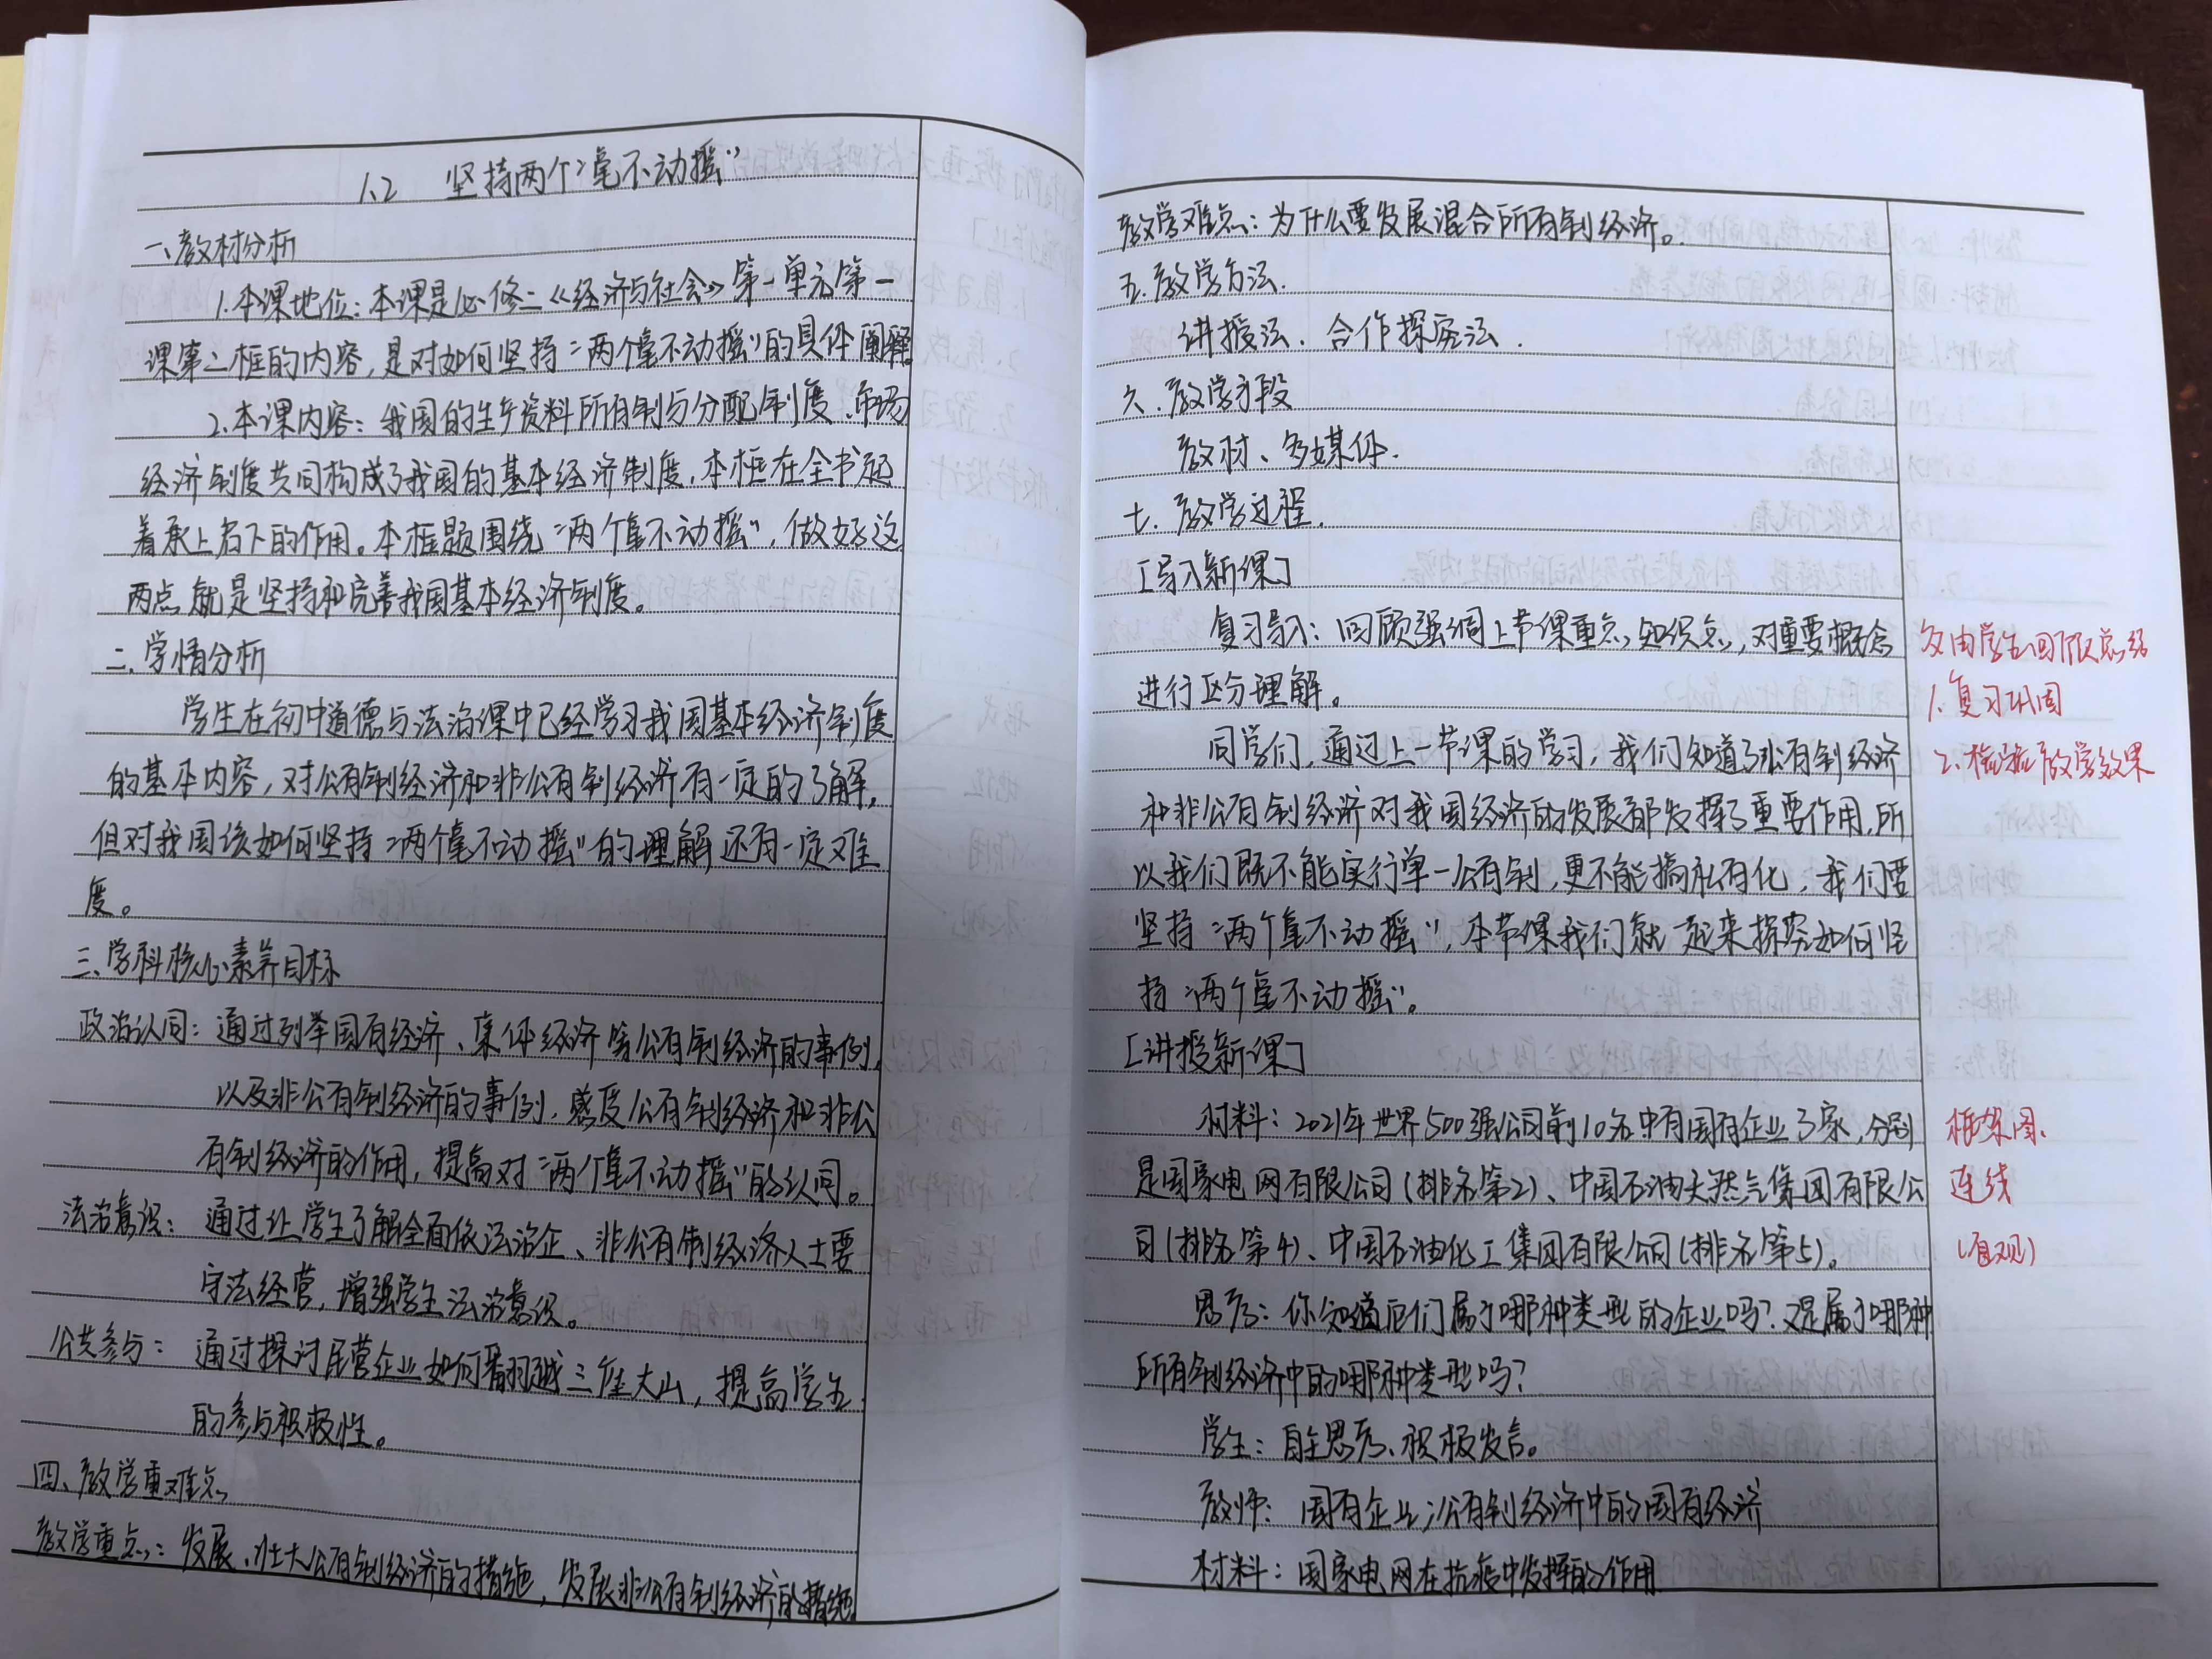 1.2 坚持两个"毫不动摇"
一、教材分析
1.本课地位：本课是必修二《经济与社会》第一单元第一
课第二框的内容，是对如何坚持"两个毫不动摇"的具体阐释。
2.本课内容：我国的生产资料所有制与分配制度、市场
经济制度共同构成了我国的基本经济制度，本框在全书起
着承上启下的作用。本框题围绕"两个毫不动摇"，做好这
两点就是坚持和完善我国基本经济制度。
二.学情分析
学生在初中道德与法治课中已经学习我国基本经济制度
的基本内容，对公有制经济和非公有制经济有一定的了解，
但对我国该如何坚持"两个毫不动摇"的理解还有一定难
度。
三、学科核心素养目标
政治认同：通过列举国有经济、集体经济等公有制经济的事例，
以及非公有制经济的事例，感受公有制经济和非公
有制经济的作用，提高对"两个毫不动摇"的认同。
法治意识：通过让学生了解全面依法治企、非公有制经济人士要
守法经营，增强学生法治意识。
公共参与：通过探讨民营企业如何翻越三座大山，提高学生
的参与积极性。
四、教学重难点
教学重点：发展、壮大公有制经济的措施，发展非公有制经济的措施
教学难点：为什么要发展混合所有制经济。
五.教学方法.
讲授法.合作探究法.
六.教学手段
教材、多媒体.
七.教学过程.
[导入新课]
复习导入：回顾强调上节课重点知识点，对重要概念
进行区分理解。
同学们，通过上一节课的学习，我们知道了公有制经济
和非公有制经济对我国经济的发展都发挥了重要作用，所
以我们既不能实行单一公有制，更不能搞私有化，我们要
坚持"两个毫不动摇"，本节课我们就一起来探究如何坚
持"两个毫不动摇"。
[讲授新课]
材料：2021年世界500强公司前10名中有国有企业3家，分别
是国家电网有限公司(排名第2)、中国石油天然气集团有限公
司(排名第4)、中国石油化工集团有限公司(排名第5)。
思考：你知道它们属于哪种类型的企业吗？又是属于哪种
所有制经济中的哪种类型吗？
学生：自主思考、积极发言。
教师：国有企业；公有制经济中的国有经济
材料：国家电网在抗疫中发挥的作用
由学生回顾总结
1.复习巩固
2.检验教学效果
框架图、
连线
(直观)